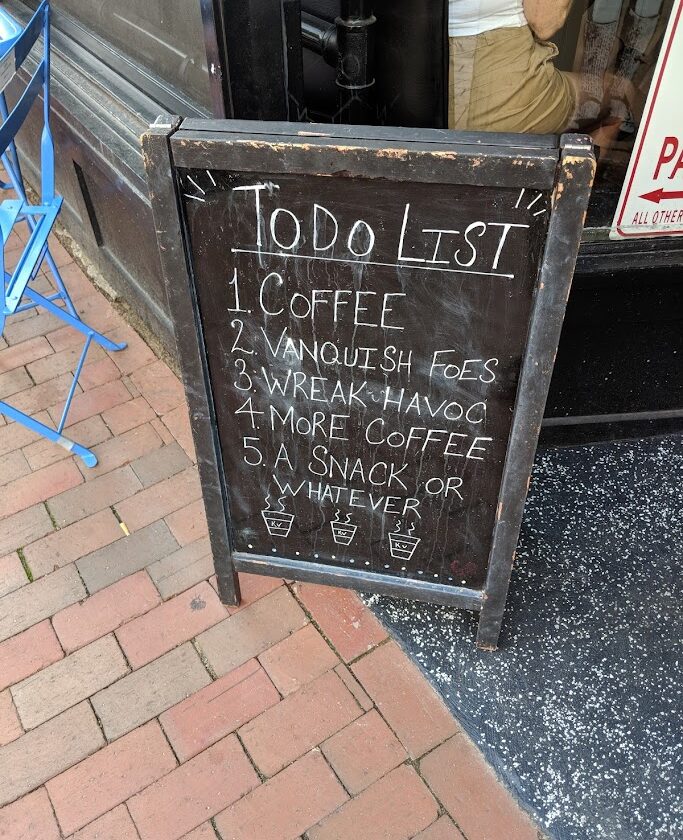 TODO LIST
1. COFFEE
2. VANQUISH FOES
3. WREAK HAVOC
4. MORE COFFEE
5. A SNACK OR
WHATEVER
KV KV KV
PA
ALL OTHER